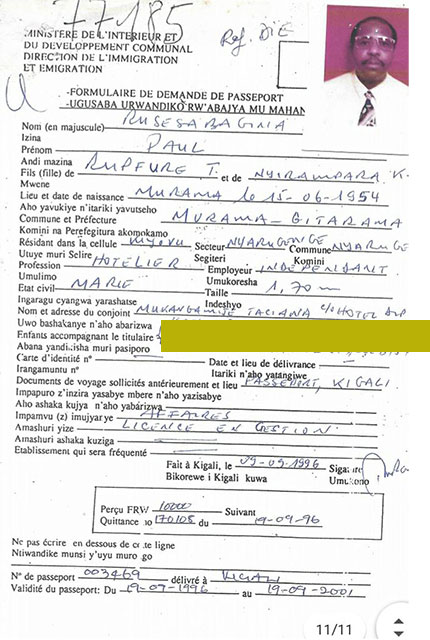 77185
Ref. DIE
MINISTERE DE L'INTERIEUR ET
DU DEVELOPPEMENT COMMUNAL
DIRECTION DE L'IMMIGRATION
ET EMIGRATION
-FORMULAIRE DE DEMANDE DE PASSEPORT
-UGUSABA URWANDIKO RW'ABAJYA MU MAHAN
Nom (en majuscule) RUSESABAGINA
Izina
Prénom PAUL
Andi mazina
Fils (fille) de RUPFURE T. et de NYIRAMPARA K.
Mwene
Lieu et date de naissance MURAMA le 15-06-1954
Aho yavukiye n'itariki yavutseho
Commune et Préfecture MURAMA - GITARAMA
Komini na Perefegitura akomokamo
Résidant dans la cellule KIYOVU Secteur NYARUGENGE Commune NYARUGE
Utuye muri Selire Segiteri Komini
Profession HOTELIER Employeur INDEPENDANT
Umulimo Umukoresha
Etat civil MARIE Taille 1,70 m
Ingaragu cyangwa yarashatse Indeshyo
Nom et adresse du conjoint MUKANGAMIJE TACIANA c/o HOTEL
Uwo bashakanye n'aho abarizwa
Enfants accompagnant le titulaire
Abana yandikisha muri pasiporo
Carte d'identité n° Date et lieu de délivrance
Irangamuntu n° Itariki n'aho yatangiwe
Documents de voyage sollicités antérieurement et lieu PASSEPORT, KIGALI
Impapuro z'inzira yasabye mbere n'aho yazisabye
Aho ashaka kujya n'aho yabarizwa
Impamvu (z) imujyan ye AFFAIRES
Amashuri yize LICENCE EN GESTION
Amashuri ashaka kuziga
Etablissement qui sera fréquenté
Fait à Kigali, le 09-09-1996 Signature
Bikorewe i Kigali kuwa Umukono
Perçu FRW 10000 Suivant
Quittance no 170108 du 19-09-96
Ne pas écrire en dessous de cette ligne
Ntiwandike munsi y'uyu murongo
N° de passeport 003469 délivré à KIGALI
Validité du passeport: Du 19-09-1996 au 19-09-2001
11/11